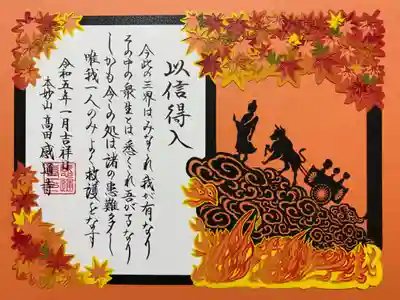 以信得入
今此の三界はみなこれ我が有なり
その中の衆生は悉くこれ吾が子なり
しかも今この処は諸の患難多し
唯我一人のみよく救護をなす
令和五年一月吉祥日
本妙山 高田 感通寺